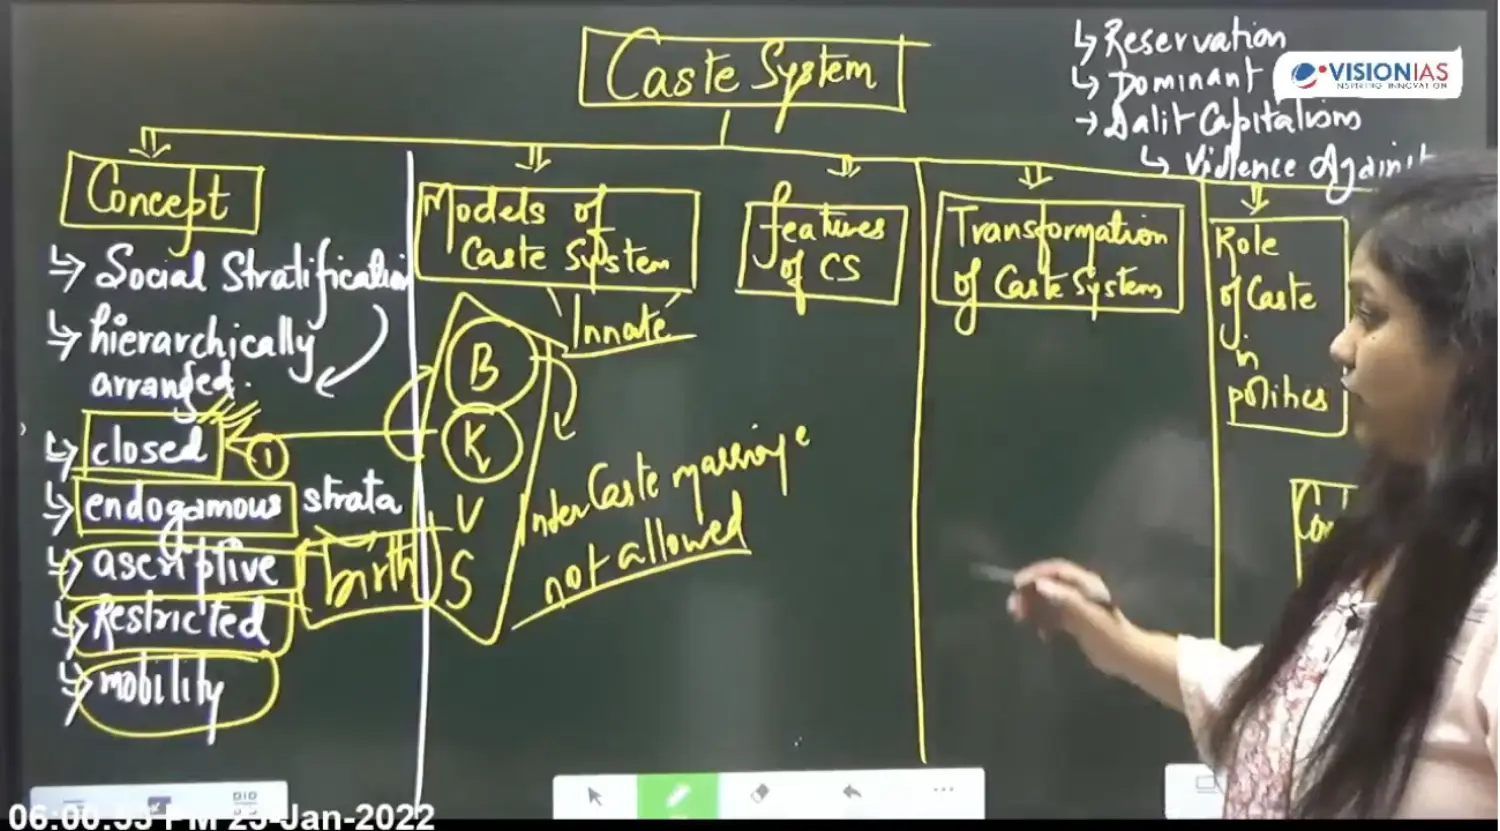 Caste System
↳ Reservation
↳ Dominant
→ Dalit Capitalism
↳ Violence Against
VISIONIAS
INSPIRING INNOVATION
Concept
↳ Social Stratification
↳ hierarchically
arranged.
↳ closed
1
↳ endogamous strata
↳ ascriptive
birth
↳ Restricted
↳ mobility
Models of
Caste System
Innate
B
K
V
S
Inter Caste marriage
not allowed
features
of CS
Transformation
of Caste System
Role
of Caste
in
politics
06:00:53 PM 25-Jan-2022